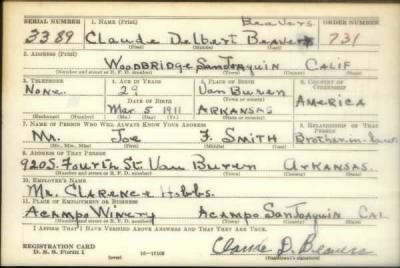 Beavers
SERIAL NUMBER 1. NAME (Print) ORDER NUMBER
3389 Claude Delbert Beavers 731
(First) (Middle) (Last)
2. ADDRESS (Print)
Woodbridge San Joaquin Calif
(Number and street or R. F. D. number) (Town) (County) (State)
3. TELEPHONE 4. AGE IN YEARS 5. PLACE OF BIRTH 6. COUNTRY OF CITIZENSHIP
None. 29 Van Buren
DATE OF BIRTH (Town or county) America
Mar 5 1911 Arkansas
(Exchange) (Number) (Mo.) (Day) (Yr.) (State or country)
7. NAME OF PERSON WHO WILL ALWAYS KNOW YOUR ADDRESS 8. RELATIONSHIP OF THAT PERSON
Mr. Joe F. Smith Brother in law.
(Mr., Mrs., Miss) (First) (Middle) (Last)
9. ADDRESS OF THAT PERSON
920 S. Fourth St. Van Buren Arkansas.
(Number and street or R. F. D. number) (Town) (County) (State)
10. EMPLOYER'S NAME
Mr. Clarence Hibbs.
11. PLACE OF EMPLOYMENT OR BUSINESS
Acampo Winery Acampo San Joaquin Cal
(Number and street or R. F. D. number) (Town) (County) (State)
I AFFIRM THAT I HAVE VERIFIED ABOVE ANSWERS AND THAT THEY ARE TRUE.
REGISTRATION CARD Claude D. Beavers
D. S. S. Form 1 (over) 16-17105 (Registrant's signature)